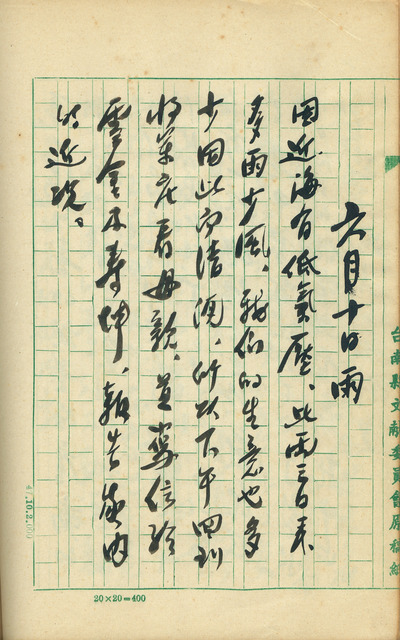 六月十日雨
因近海有低氣壓、此兩三日來
多雨少風、我們的生意也多
少因此而清淡、所以下午四到
將軍庄看母親、並寫信給
雲金及壽坤、報告家內
的近況。
台南縣文獻委員會原稿紙
20×20=400